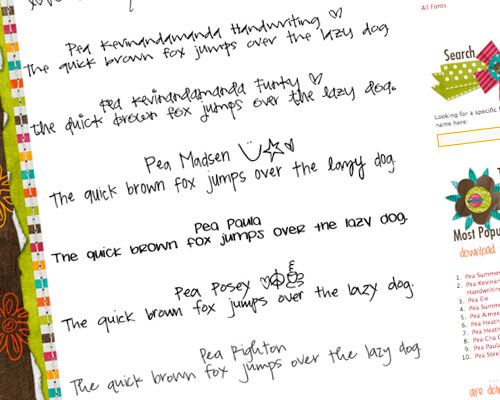 All Fonts
Pea Kevinandamanda Handwriting
The quick brown fox jumps over the lazy dog
Pea Kevinandamanda Funky
the quick brown fox jumps over the lazy dog.
Pea Madsen
The quick brown fox jumps over the lazy dog
Pea Paula
The quick brown fox jumps over the lazy dog.
Pea Posey
The quick brown fox jumps over the lazy dog.
Pea Righton
The quick brown fox jumps over the lazy dog
Search
Looking for a specific
name here:
Most Popu
download
1. Pea Summe
2. Pea Kevinan
Handwriting
3. Pea Ele
4. Pea Summe
5. Pea Aimee
6. Pea Heath
7. Pea Heath
8. Pea Cha C
9. Pea Paula
10. Pea Stee
are do